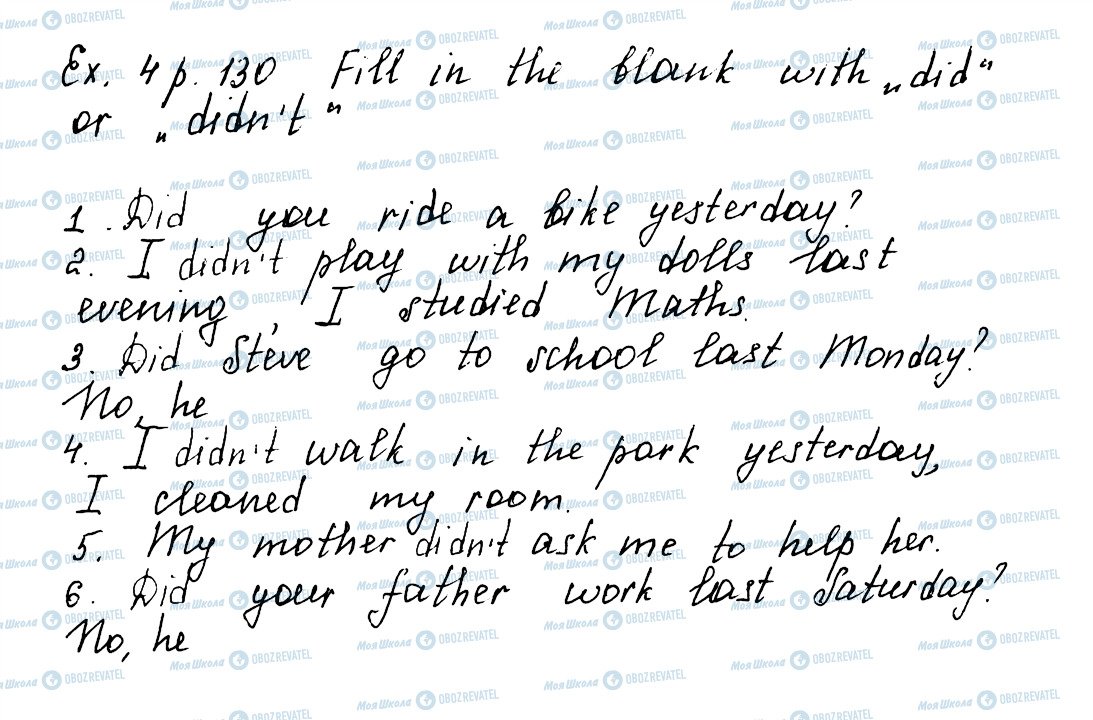 Ex. 4 p. 130 Fill in the blank with „did“
or „didn't“
1. Did you ride a bike yesterday?
2. I didn't play with my dolls last
evening, I studied Maths.
3. Did Steve go to school last Monday?
No, he
4. I didn't walk in the park yesterday,
I cleaned my room.
5. My mother didn't ask me to help her.
6. Did your father work last Saturday?
No, he
Моя Школа OBOZREVATEL